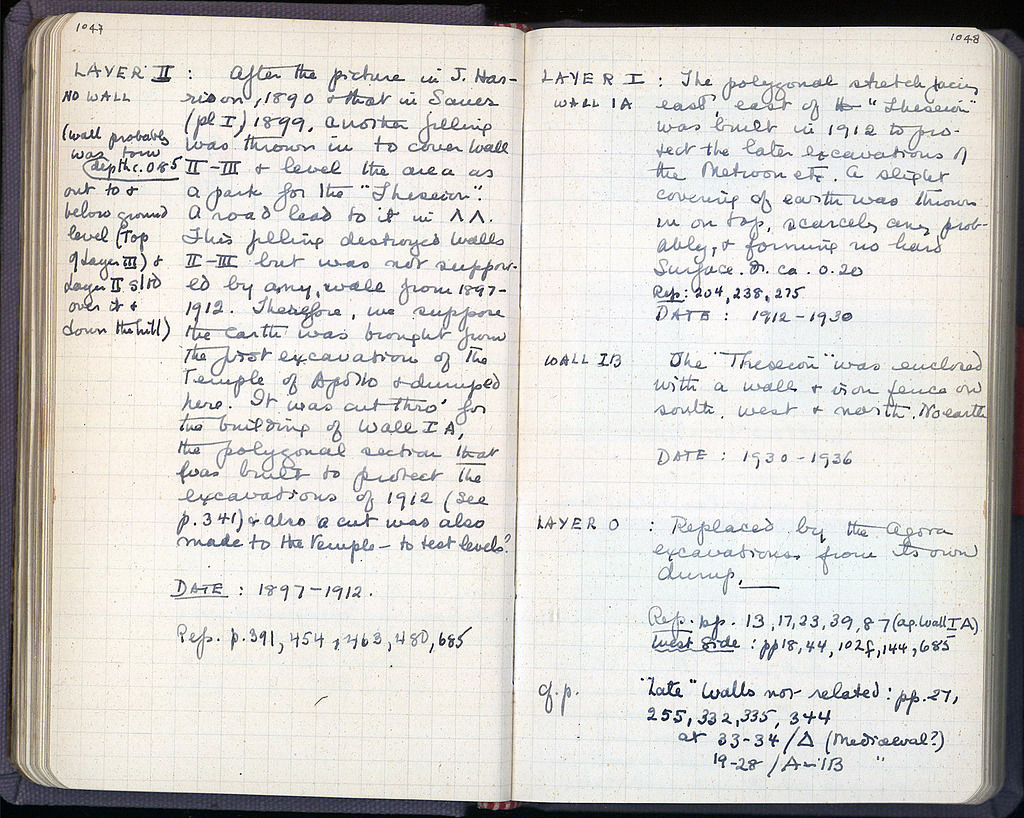 1047
LAYER II : After the picture in J. Har-
NO WALL
rison, 1890 & that in Sauer
(pl I) 1899, another filling
was thrown in to cover Wall
II-III & level the area as
a park for the "Theseion".
A road lead to it in ΛΛ.
This filling destroyed walls
II-III but was not support-
ed by any wall from 1897-
1912. Therefore, we suppose
the earth was brought from
the first excavation of the
Temple of Apollo & dumped
here. It was cut thro' for
the building of Wall I A,
the polygonal section that
was built to protect the
excavations of 1912 (see
p. 341) & also a cut was also
made to the temple – to test levels?
(Wall probably
was torn
depth c. 0.85
out to &
below ground
level (Top
of Layer III) &
Layer II slid
over it &
down the hill)
DATE : 1897-1912.
Refs. p. 391, 454, 463, 480, 685
1048
LAYER I : The polygonal stretch facing
WALL IA
east, east of "Theseion"
was built in 1912 to pro-
tect the later excavations of
the Metroon etc. A slight
covering of earth was thrown
in on top, scarcely any, prob-
ably, & forming no hard
Surface. D. ca. 0.20
Refs: 204, 238, 275
DATE : 1912-1930
WALL IB
The "Theseion" was enclosed
with a wall & iron fence on
south, west & north. No earth
DATE : 1930-1936
LAYER O : Replaced by the Agora
excavations from its own
dump.
Refs. pp. 13, 17, 23, 39, 87 (ag. Wall IA)
West Side : pp 18, 44, 102f, 144, 685
cf. p.
"Late" Walls not related : pp. 27,
255, 332, 335, 344
at 33-34/Δ (Mediaeval?)
19-28 / "